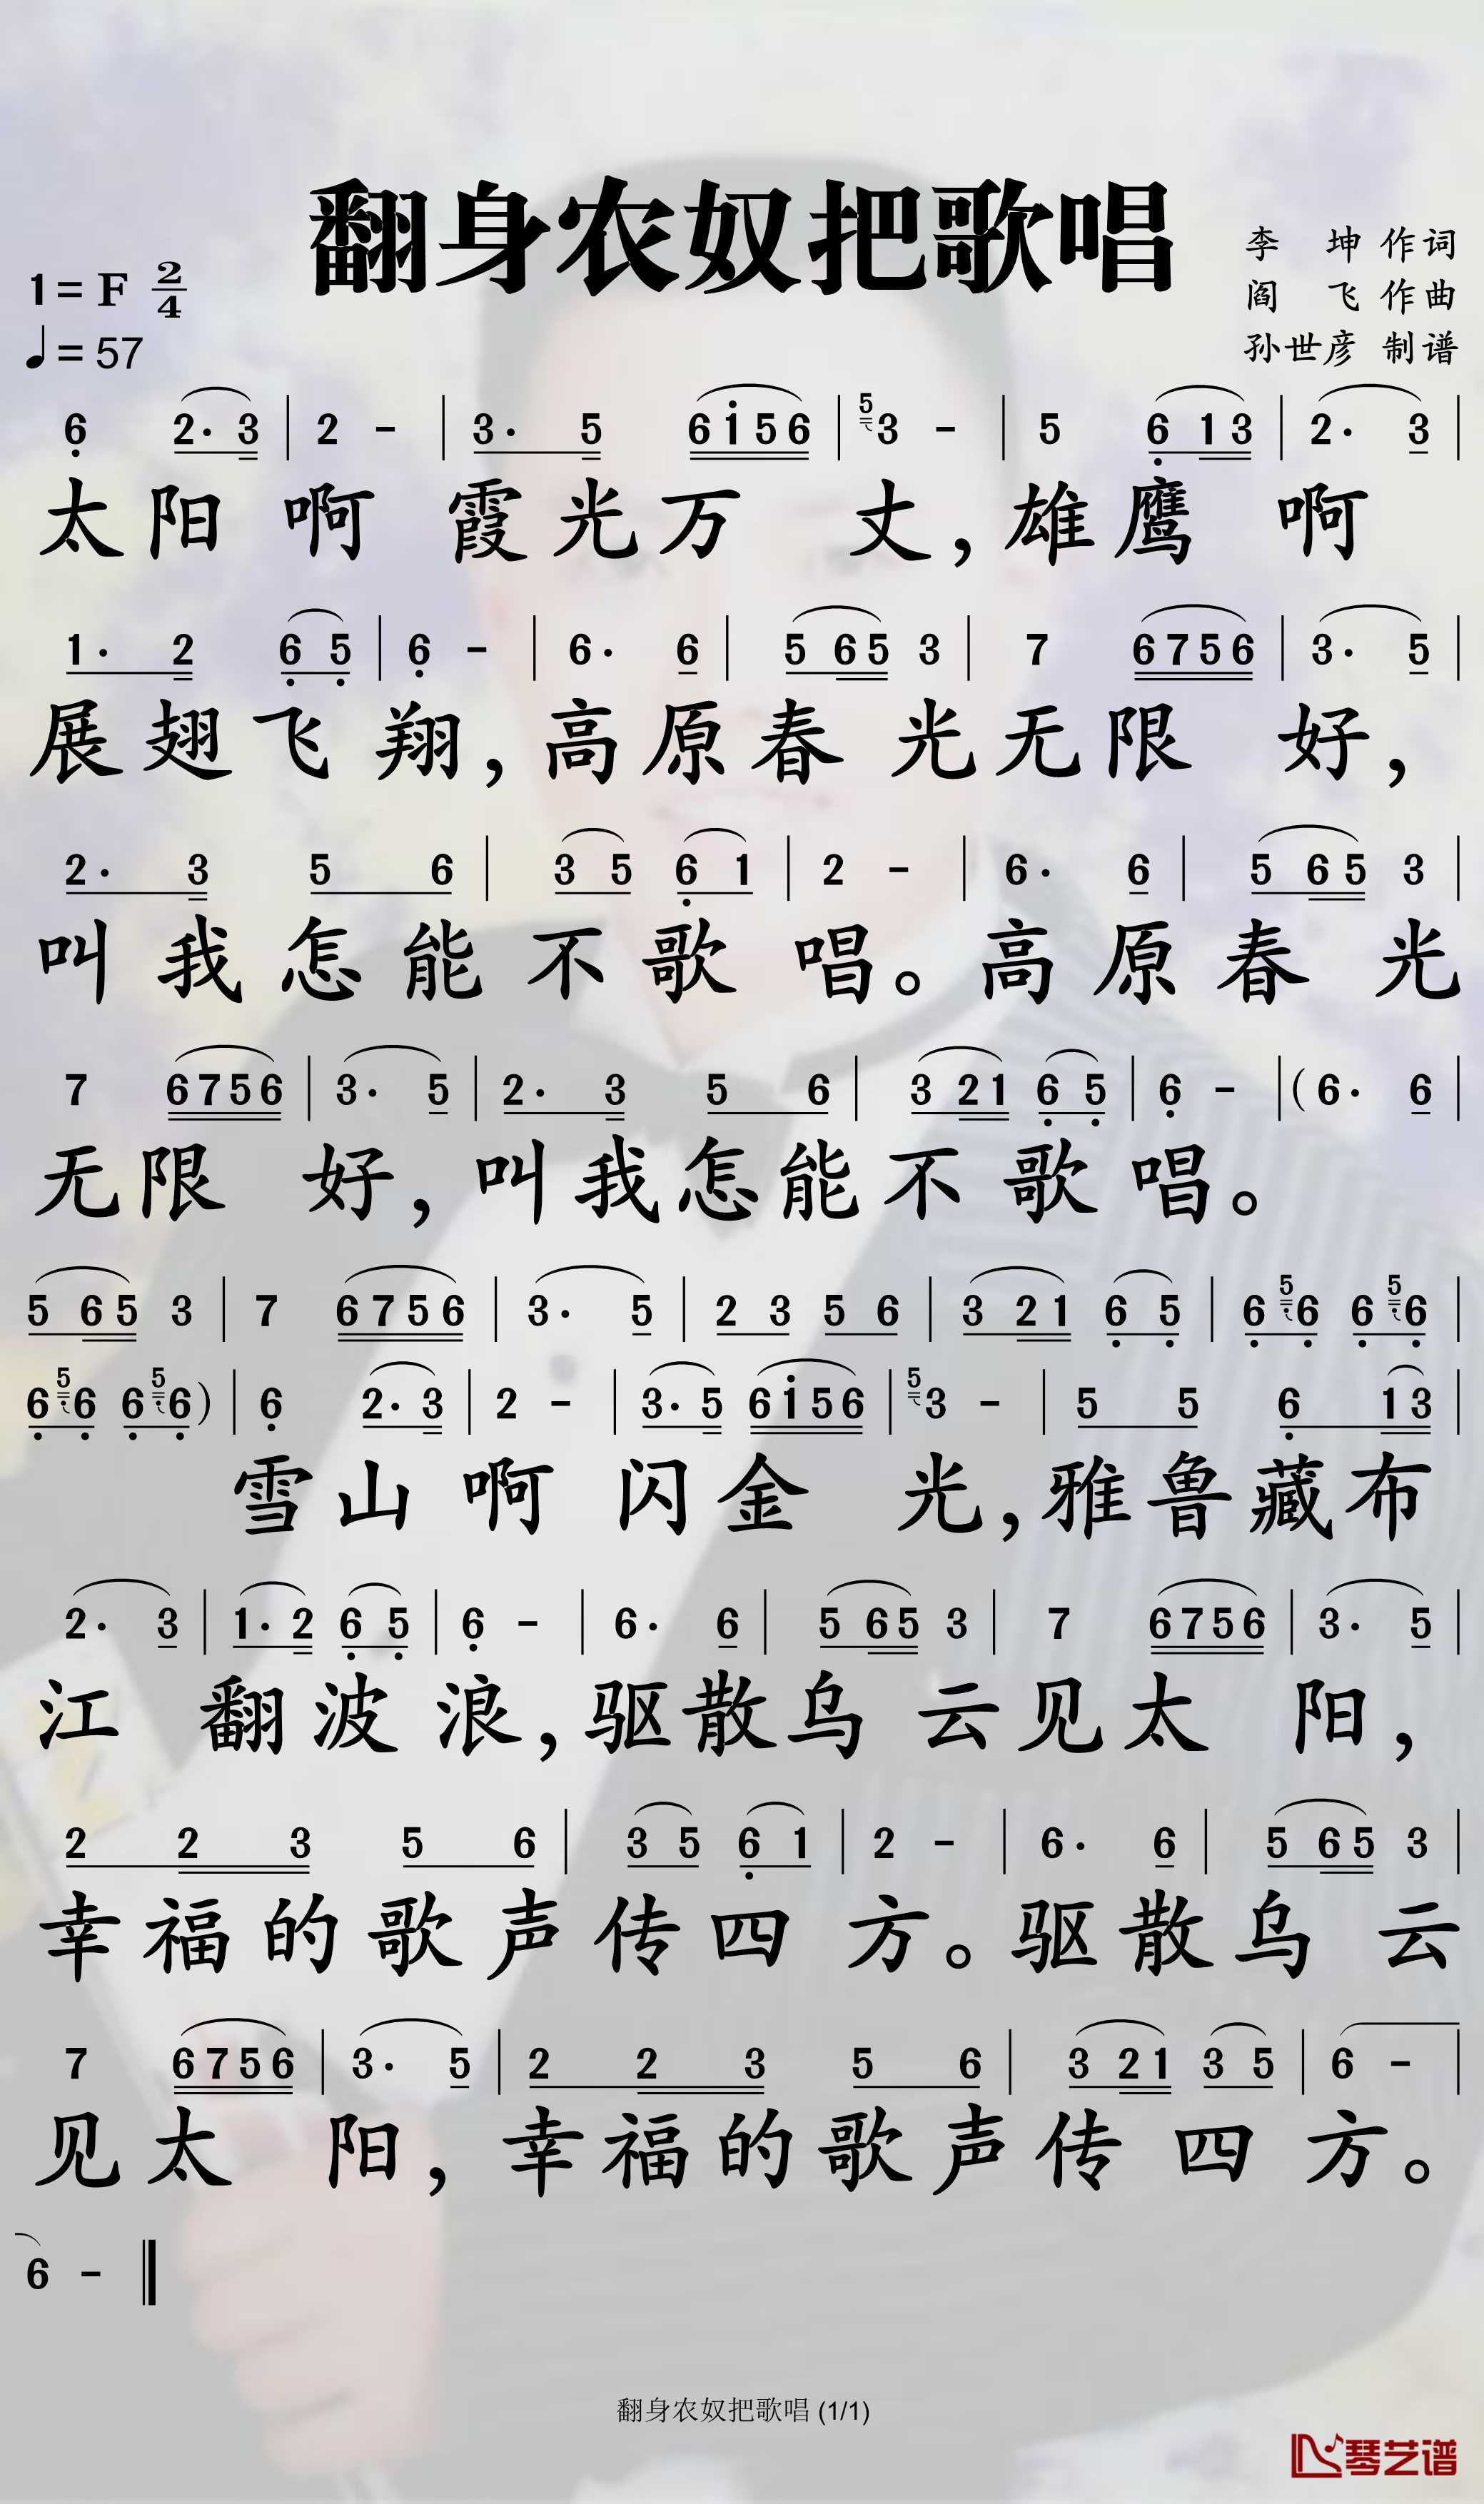 翻身农奴把歌唱
李 坤 作词
1=F 2/4
阎 飞 作曲
♩=57
孙世彦 制谱
6̣ 2· 3 | 2 - | 3· 5 6i̇56 | 5 3 - | 5 6̣ 13 | 2· 3 |
太阳 啊 霞光万 丈,雄鹰 啊
1· 2 6̣ 5̣ | 6̣ - | 6· 6 | 5 65 3 | 7 6756 | 3· 5 |
展翅飞 翔,高原春 光无限 好,
2· 3 5 6 | 3 5 6̣ 1 | 2 - | 6· 6 | 5 65 3 |
叫我怎能不歌 唱。高原春光
7 6756 | 3· 5 | 2· 3 5 6 | 3 21 6̣ 5̣ | 6̣ - | (6· 6 |
无限 好,叫我怎能不歌唱。
5 65 3 | 7 6756 | 3· 5 | 2 3 5 6 | 3 21 6̣ 5̣ | 6̣ 5̣ 6̣ 6̣ 5̣ 6̣ |
6̣ 5̣ 6̣ 6̣ 5̣ 6̣) | 6̣ 2· 3 | 2 - | 3· 5 6i̇56 | 5 3 - | 5 5 6̣ 13 |
雪山 啊 闪金 光,雅鲁藏布
2· 3 | 1· 2 6̣ 5̣ | 6̣ - | 6· 6 | 5 65 3 | 7 6756 | 3· 5 |
江 翻波浪,驱散乌 云见太 阳,
2 2 3 5 6 | 3 5 6̣ 1 | 2 - | 6· 6 | 5 65 3 |
幸福的歌声传四 方。驱散乌云
7 6756 | 3· 5 | 2 2 3 5 6 | 3 21 3 5 | 6 - |
见太 阳,幸福的歌声传四方。
6 - ‖
翻身农奴把歌唱 (1/1)
琴艺谱